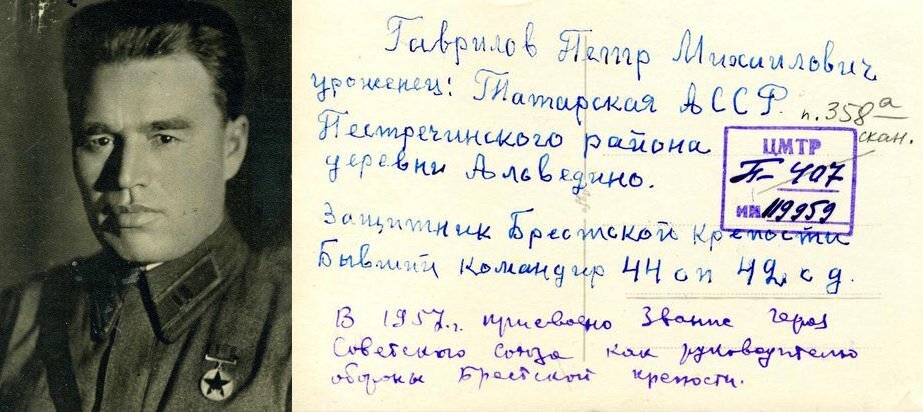 Гаврилов Петр Михаилович
уроженец: Татарская АССР.
п. 358а
скан.
Пестречинского района
деревни Альведино.
ЦМТР
П- 407
ин 119959
Защитник Брестской крепости
Бывший командир 44 сп 42 с д.
В 1957.г. присвоено звание героя
Советского союза как руководителю
обороны Брестской крепости.